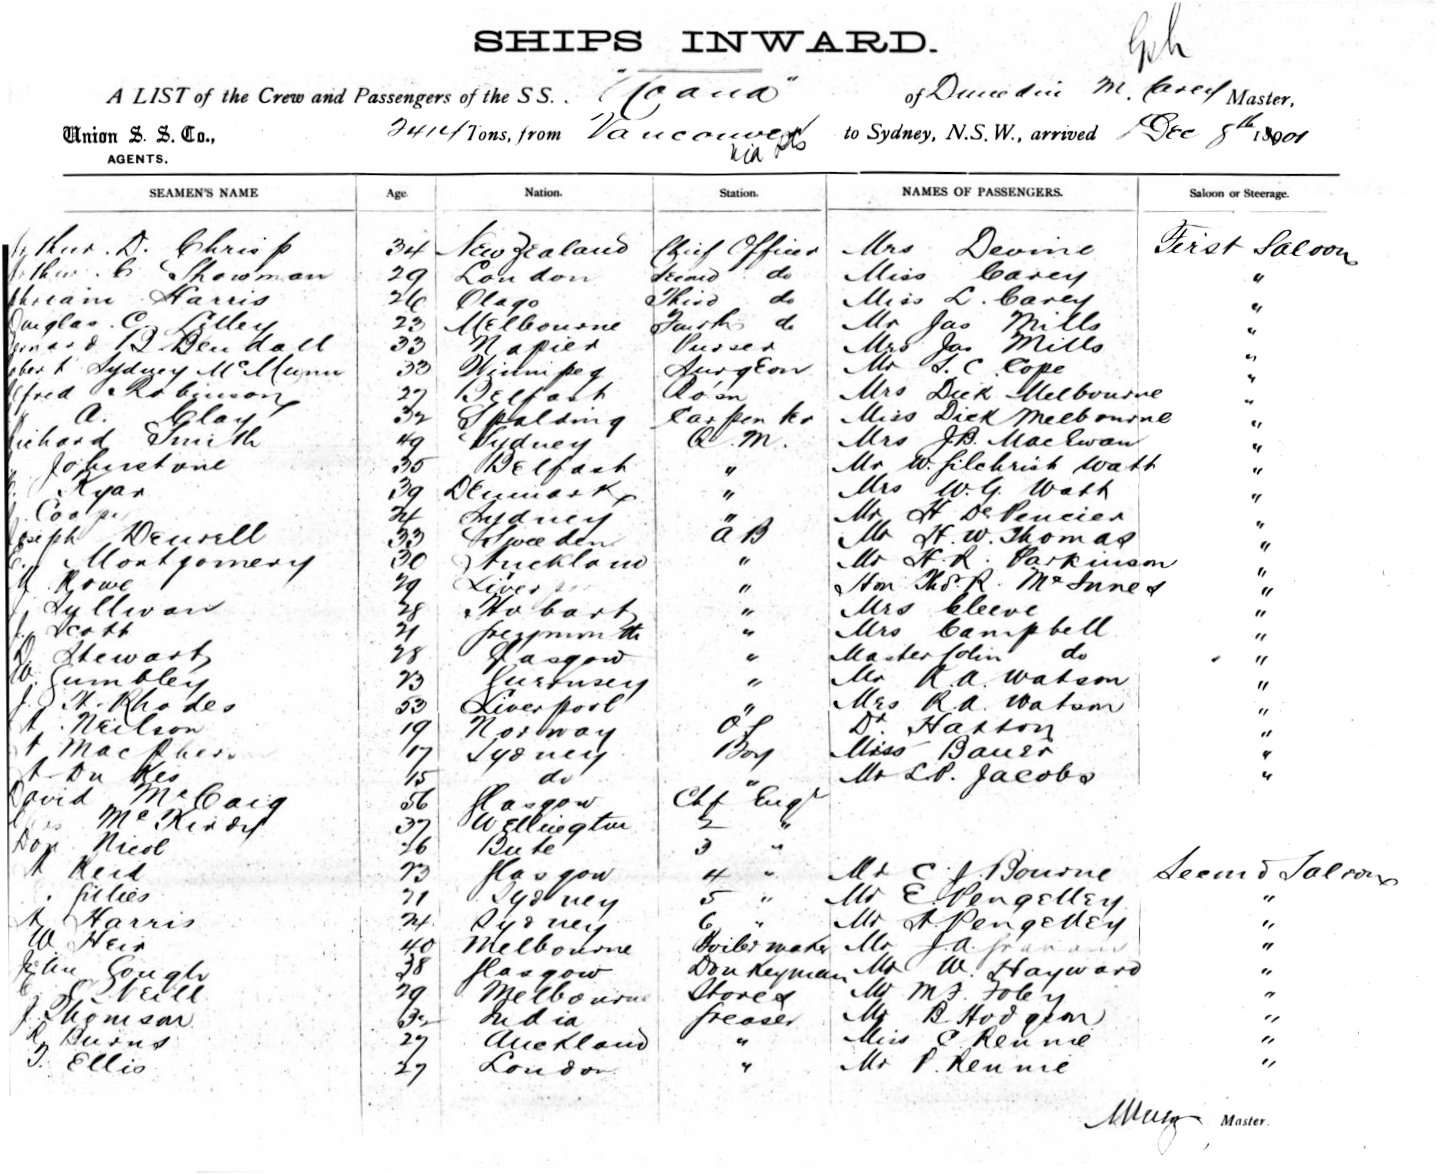 SHIPS INWARD.
A LIST of the Crew and Passengers of the S S. "Moana" of Dunedin M. Carey Master,
Union S. S. Co., 2414 Tons, from Vancouver to Sydney, N.S.W., arrived Dec 8th 1901
via
AGENTS.
SEAMEN'S NAME Age. Nation. Station. NAMES OF PASSENGERS. Saloon or Steerage.
Arthur D. Chrisp 34 New Zealand Chief Officer Mrs Devine First Saloon
Arthur C Showman 29 London Second do Miss Carey "
Harris 26 Otago Third do Miss L. Carey "
Douglas C. Lilley 23 Melbourne Fourth do Mr Jas Mills "
B Bendall 33 Napier Purser Mrs Jas Mills "
Robert Sydney McMunn 33 Winnipeg Surgeon Mr Cope "
Alfred Robinson 27 Belfast Bo'sn Mrs Dick Melbourne "
A. Clay 32 Spalding Carpenter Miss Dick Melbourne "
Richard Smith 49 Sydney Q. M. Mrs J.B. MacEwan "
Johnstone 35 Belfast " Mr W. Gilchrist Watt "
Kyar 39 Denmark " Mrs W.G. Watt "
J. Cooper 24 Sydney " Mr H De Pencier "
Joseph Dewsell 33 Sweeden A B Mr H. W. Thomas "
E. Montgomery 30 Auckland " Mr H. R. Parkinson "
Rowe 29 " Hon Thos. R. McInnes "
Syllivan 28 Hobart " Mrs Cleeve "
J. Scott 21 Greymouth " Mrs Campbell "
D Stewart 28 Glasgow " Master Colin do "
W. Gumbley 23 Guernsey " Mr R.A. Watson "
J. H. Rhodes 53 Liverpool " Mrs R.A. Watson "
A. Neilson 19 Norway O S Dr Hatton "
17 Sydney Boy Miss Bauer "
15 do " Mr L.P. Jacobs "
David McCaig 56 Glasgow Chf Engr
McKirdy 37 Wellington 2 "
Don Nicol 26 Bute 3 "
A Reid 23 Glasgow 4 " Mr C. J. Bourne Second Saloon
Gillies 21 Sydney 5 " Mr E. Pengelley "
A Harris 24 Sydney 6 " Mr A. Pengelley "
W Heir 40 Melbourne Boilermaker Mr J.A. Graham "
Gough 38 Glasgow Donkeyman Mr W. Hayward "
29 Melbourne Stores Mr M.F. Foley "
J. Thomson 32 India Greaser Mr B Hodgson "
R Burns 27 Auckland " Miss C. Rennie "
T. Ellis 27 London " Mr P. Rennie "
Master.